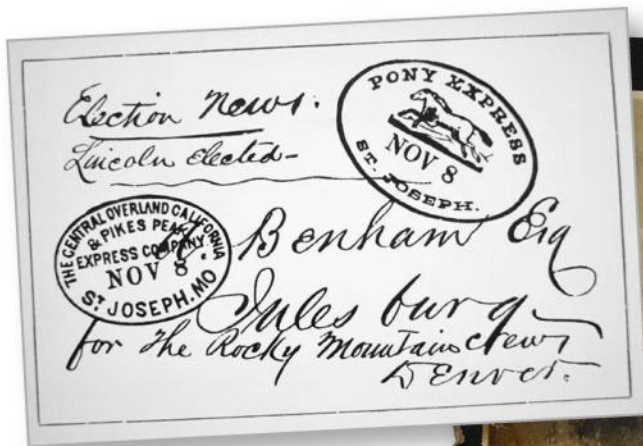 Election News.
Lincoln Elected-
PONY EXPRESS
NOV 8
ST. JOSEPH.
THE CENTRAL OVERLAND CALIFORNIA
& PIKES PEAK
EXPRESS COMPANY.
NOV 8.
ST JOSEPH. MO
Benham Esq
Julesburg
for The Rocky Mountain News
Denver.